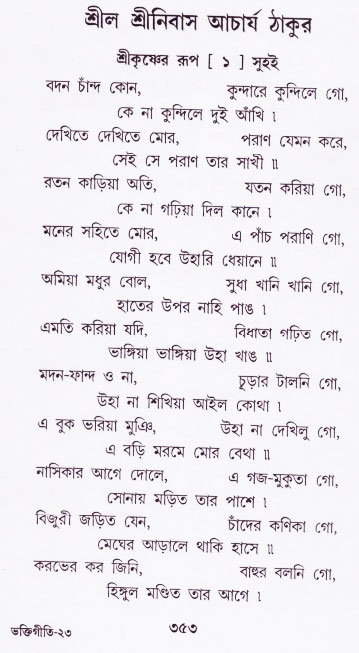 শ্রীল শ্রীনিবাস আচার্য ঠাকুর
শ্রীকৃষ্ণের রূপ [ ১ ] সুহই
বদন চাঁন্দ কোন, কুন্দারে কুন্দিলে গো,
কে না কুন্দিলে দুই আঁখি ৷
দেখিতে দেখিতে মোর, পরাণ যেমন করে,
সেই সে পরাণ তার সাখী ॥
রতন কাড়িয়া অতি, যতন করিয়া গো,
কে না গঢ়িয়া দিল কানে ৷
মনের সহিতে মোর, এ পাঁচ পরাণি গো,
যোগী হবে উহারি ধেয়ানে ॥
অমিয়া মধুর বোল, সুধা খানি খানি গো,
হাতের উপর নাহি পাঙ ৷
এমতি করিয়া যদি, বিধাতা গঢ়িত গো,
ভাঙ্গিয়া ভাঙ্গিয়া উহা খাঙ ॥
মদন-ফান্দ ও না, চূড়ার টালনি গো,
উহা না শিখিয়া আইল কোথা ৷
এ বুক ভরিয়া মুঞি, উহা না দেখিলু গো,
এ বড়ি মরমে মোর বেথা ॥
নাসিকার আগে দোলে, এ গজ-মুকুতা গো,
সোনায় মড়িত তার পাশে ৷
বিজুরী জড়িত যেন, চাঁদের কণিকা গো,
মেঘের আড়ালে থাকি হাসে ॥
করভের কর জিনি, বাহুর বলনি গো,
হিঙ্গুল মণ্ডিত তার আগে ৷
ভক্তিগীতি-২৩ ৩৫৩